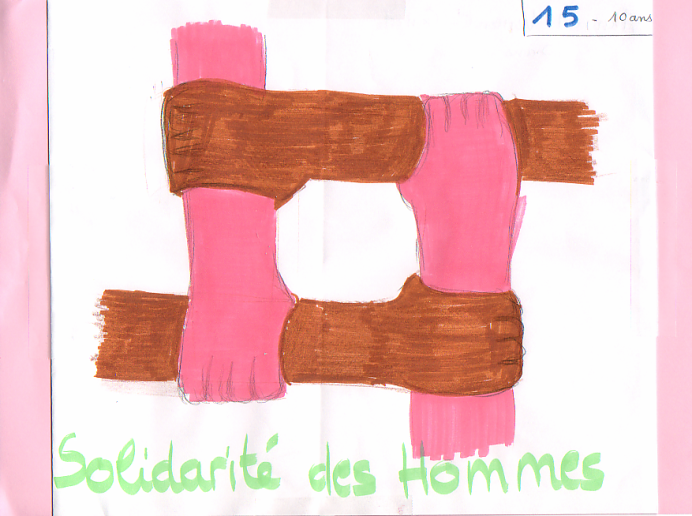 15 - 10 ans
Solidarité des Hommes